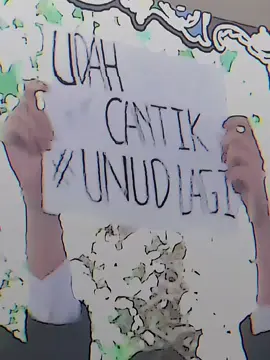 UDAH
CANTIK
#UNUD LAGI